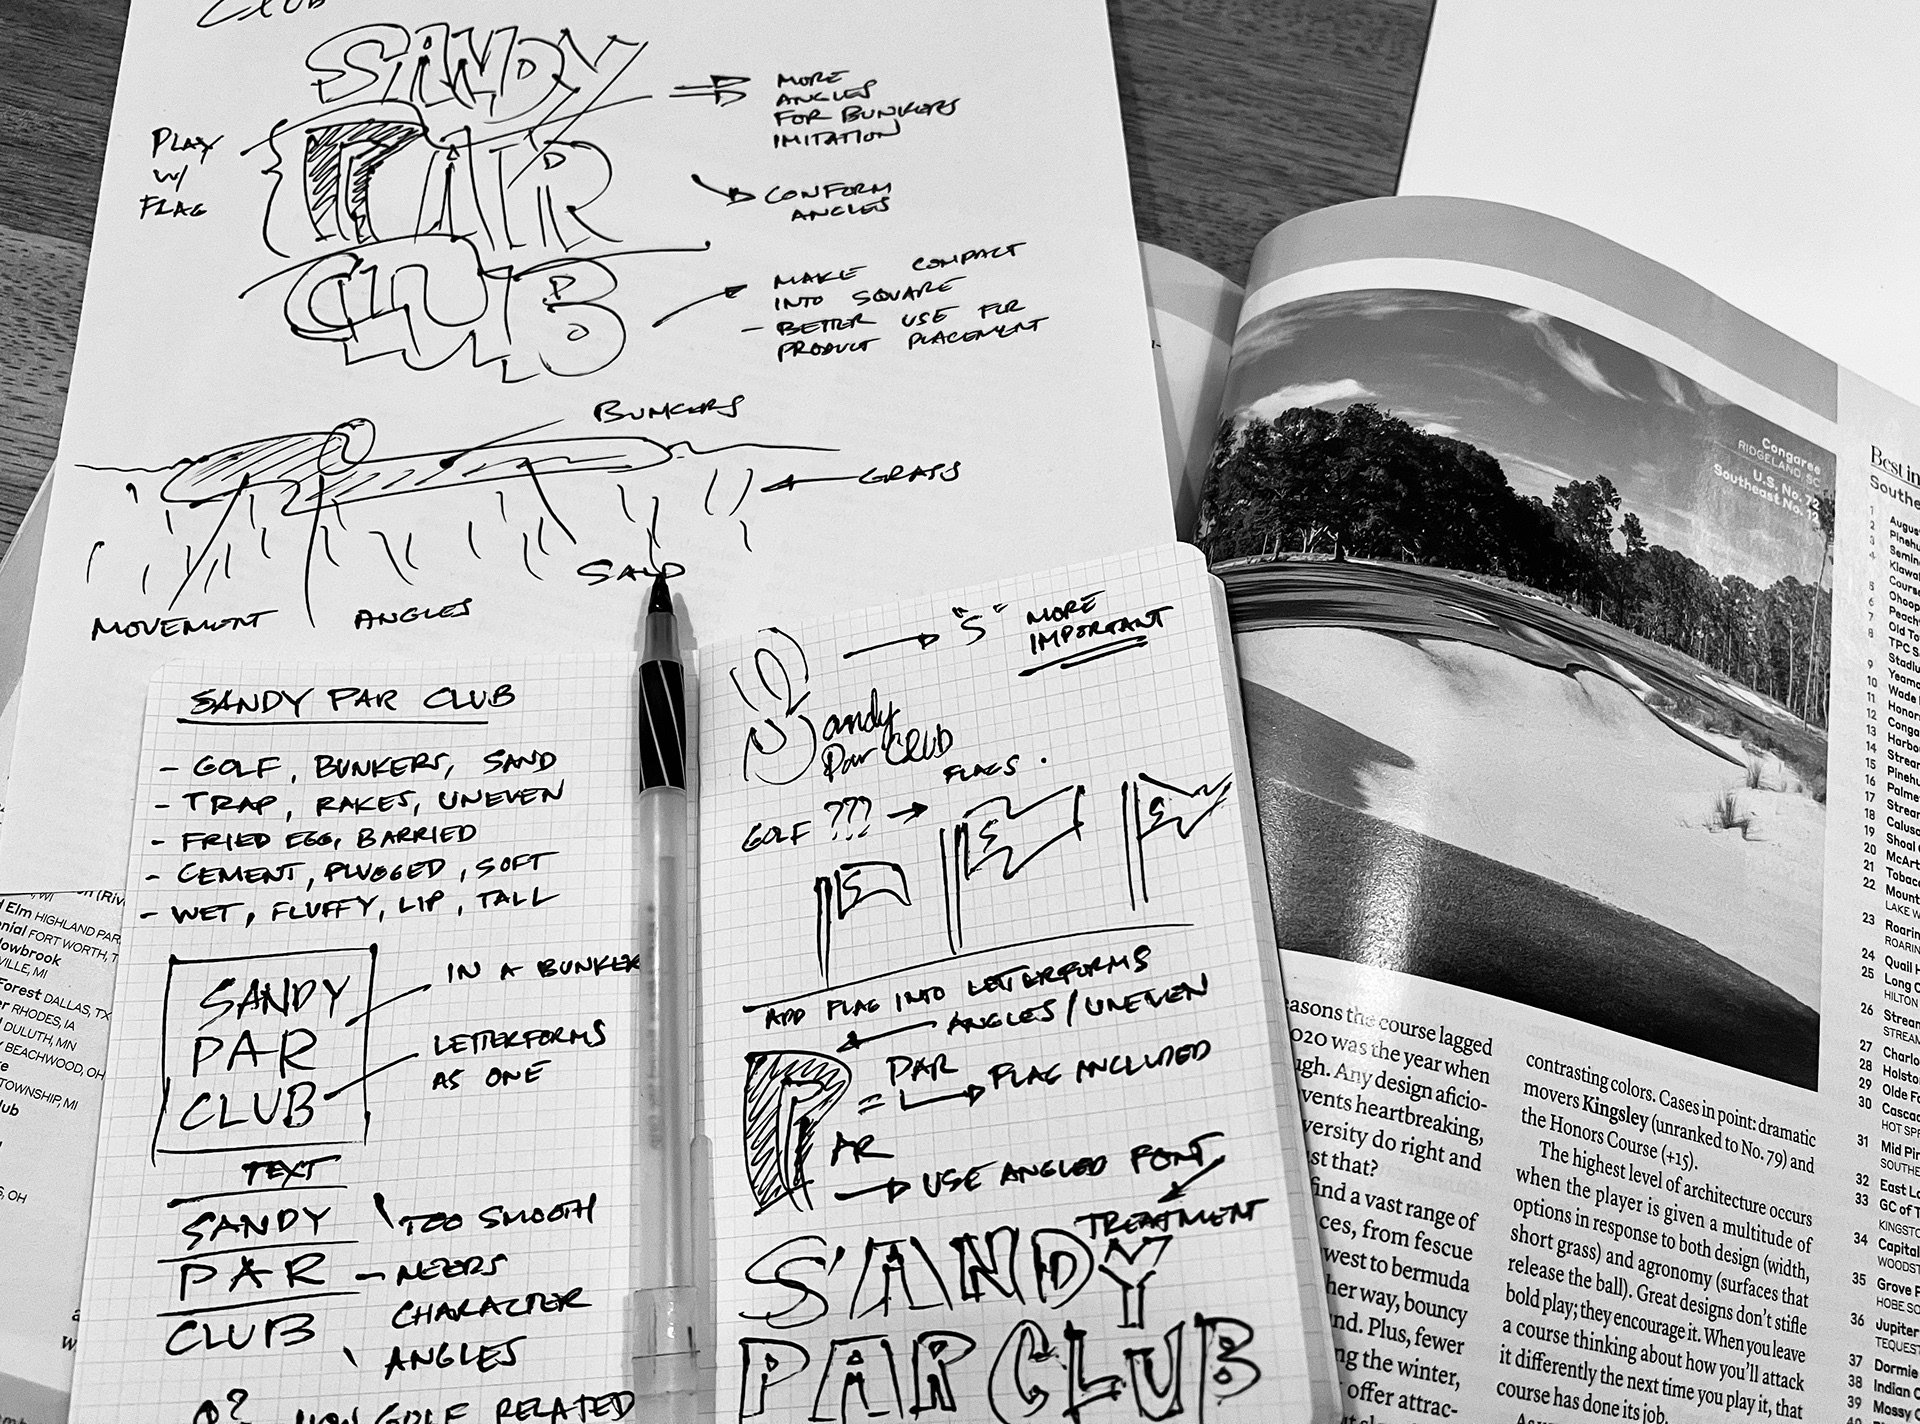 CLUB
SANDY
PAR
CLUB
PLAY
W/
FLAG
MORE
ANGLES
FOR BUNKERS
IMITATION
CONFORM
ANGLES
MAKE COMPACT
INTO SQUARE
- BETTER USE FOR
PRODUCT PLACEMENT
BUNKERS
GRASS
SAND
MOVEMENT
ANGLES
SANDY PAR CLUB
- GOLF, BUNKERS, SAND
- TRAP, RAKES, UNEVEN
- FRIED EGG, BARRIED
- CEMENT, PLUGGED, SOFT
- WET, FLUFFY, LIP, TALL
SANDY
PAR
CLUB
IN A BUNKER
LETTERFORMS
AS ONE
TEXT
SANDY
PAR
CLUB
TOO SMOOTH
- NEEDS
CHARACTER
ANGLES
NON GOLF RELATED
"S" MORE
IMPORTANT
Sandy
Par Club
FLAGS.
GOLF ???
- ADD FLAG INTO LETTERFORMS
ANGLES/UNEVEN
P
AR
= PAR
FLAG INCLUDED
USE ANGLED FONT
TREATMENT
SANDY
PAR CLUB
Congaree
RIDGELAND, SC
U.S. No. 72
Southeast No. 12
easons the course lagged
2020 was the year when
ugh. Any design aficio-
vents heartbreaking,
versity do right and
st that?
find a vast range of
ces, from fescue
west to bermuda
her way, bouncy
nd. Plus, fewer
ng the winter,
offer attrac-
contrasting colors. Cases in point: dramatic
movers Kingsley (unranked to No. 79) and
the Honors Course (+15).
The highest level of architecture occurs
when the player is given a multitude of
options in response to both design (width,
short grass) and agronomy (surfaces that
release the ball). Great designs don't stifle
bold play; they encourage it. When you leave
a course thinking about how you'll attack
it differently the next time you play it, that
course has done its job.
Best in
Southe
1 Augus
2 Pinehu
3 Semin
4 Kiawa
Cours
5 Ohoop
6 Peach
7 Old To
8 TPC S
Stadiu
9 Yeama
10 Wade
11 Honor
12 Conga
13 Harbo
14 Strean
15 Pinehu
16 Palme
17 Strean
18 Calusa
19 Shoal
20 McArt
21 Tobac
22 Mount
LAKE W
23 Roarin
ROARIN
24 Quail H
25 Long C
HILTON
26 Stream
STREAM
27 Charlo
28 Holsto
29 Olde Fa
30 Cascad
HOT SPR
31 Mid Pin
SOUTHE
32 East La
33 GC of T
KINGSTO
34 Capital
WOODST
35 Grove P
HOBE SO
36 Jupiter
TEQUEST
37 Dormie
38 Indian C
39 Mossy C
Elm HIGHLAND PAR
nial FORT WORTH, T
lowbrook
VILLE, MI
Forest DALLAS, TX
er RHODES, IA
DULUTH, MN
BEACHWOOD, OH
TOWNSHIP, MI
lub
, OH